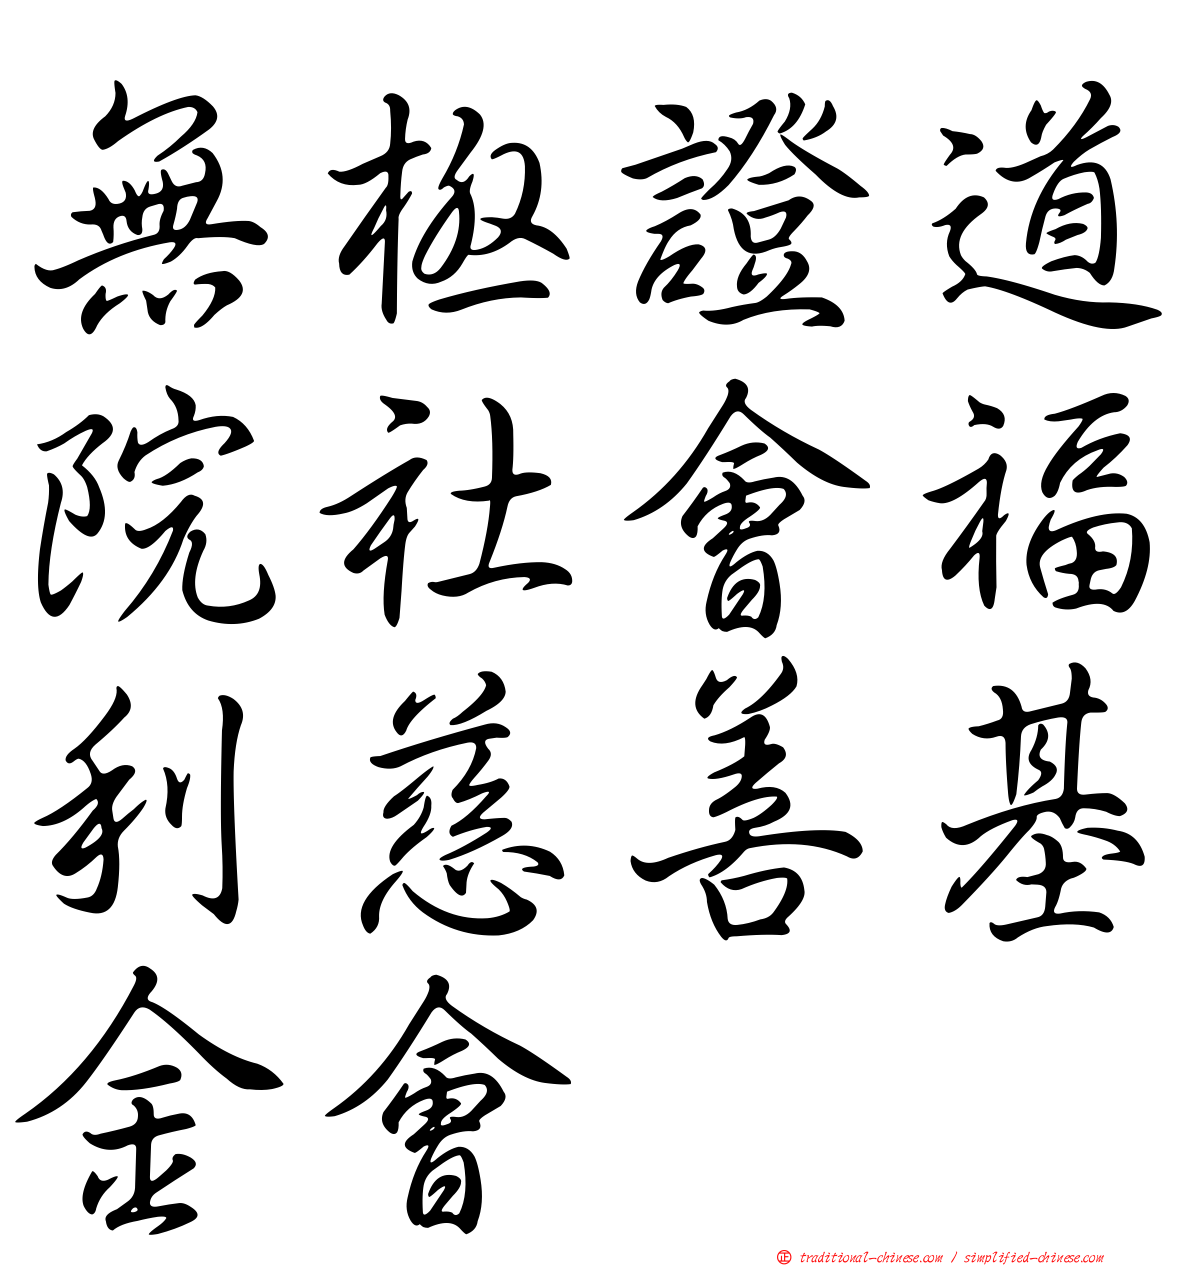 無極證道
院社會福
利慈善基
金會
正 traditional-chinese.com / simplified-chinese.com